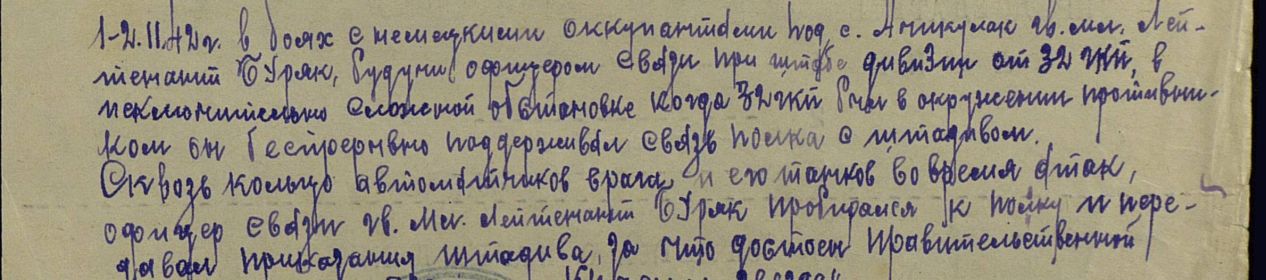 1-2.11.42 г. в боях с немецкими оккупантами под с. Аникулак гв. мл. Лей-
тенант Буряк, будучи офицером связи при штабе дивизии от 32 гкп, в
исключительно сложной обстановке когда 32 гкп был в окружении противни-
ком он бесперерывно поддерживал связь полка с штадивом.
Сквозь кольцо автоматчиков врага и его танков во время атак,
офицер связи гв. мл. лейтенант Буряк пробирался к полку и пере-
давал приказания штадива, за что достоен правительственной